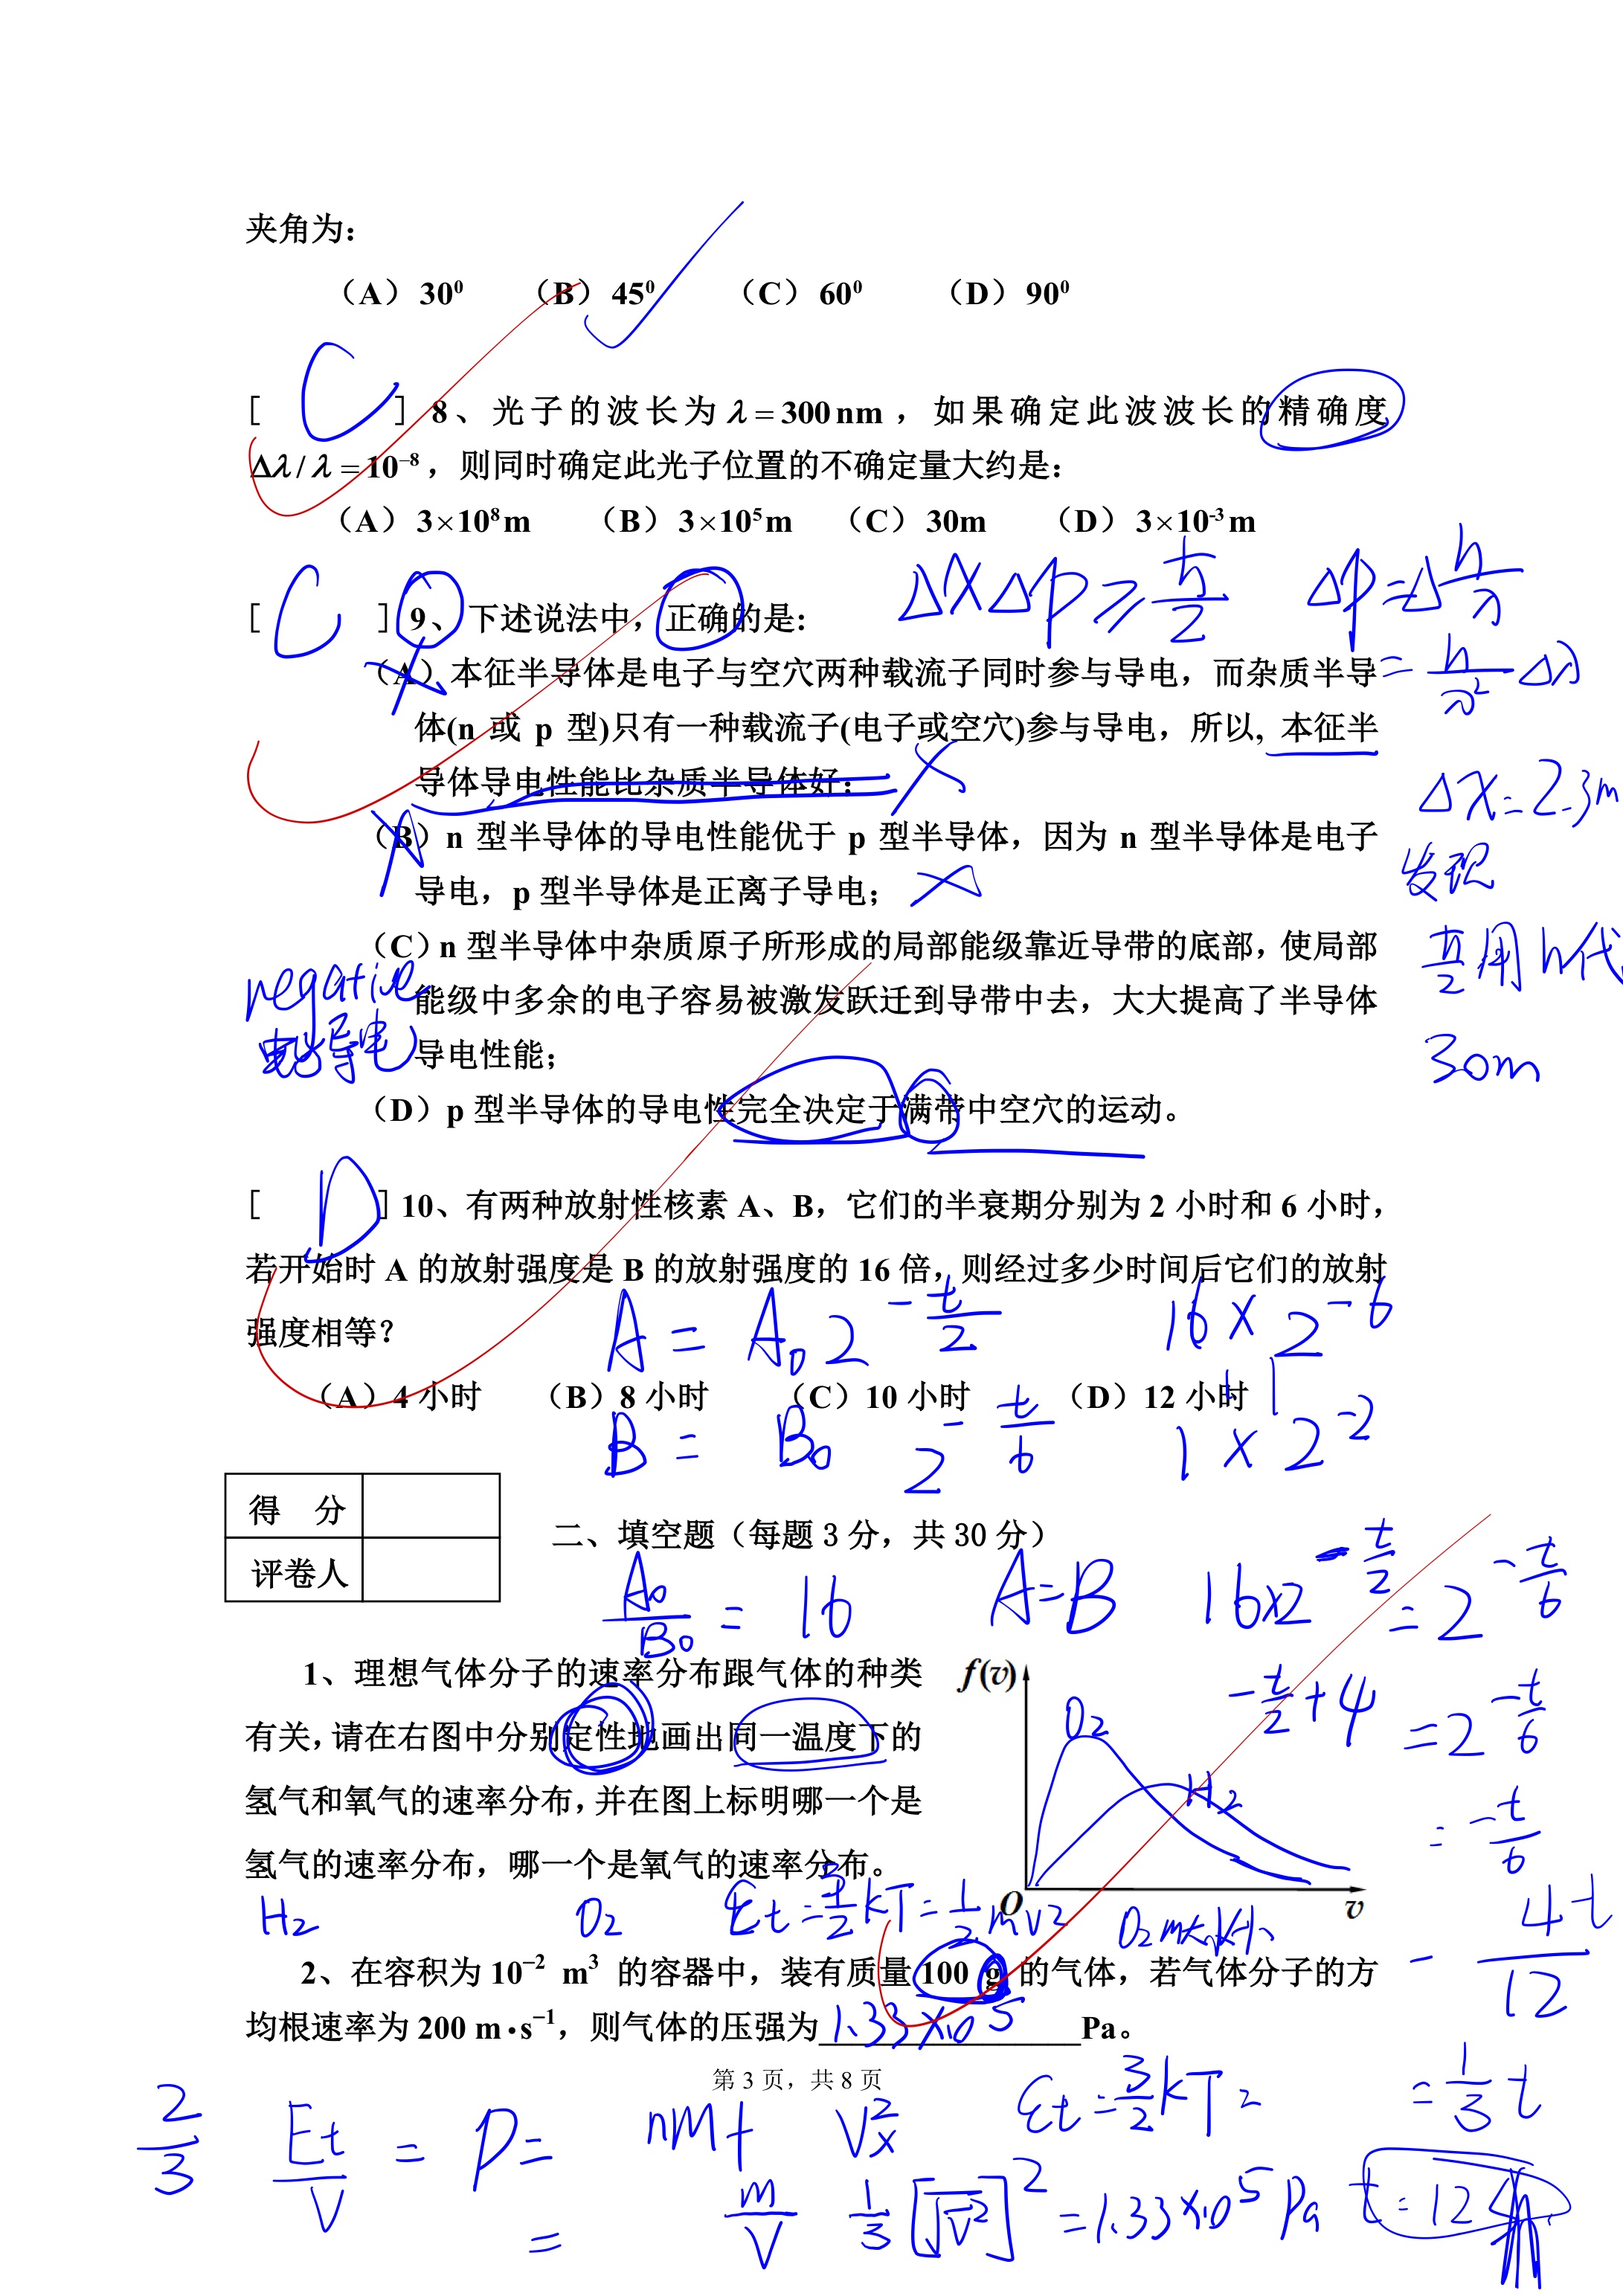 夹角为:
（A）30⁰ （B）45⁰ （C）60⁰ （D）90⁰
[ C ] 8、光子的波长为 λ = 300 nm ，如果确定此波波长的精确度
Δλ / λ = 10⁻⁸，则同时确定此光子位置的不确定量大约是:
（A）3×10⁸ m （B）3×10⁵ m （C）30m （D）3×10⁻³ m
ΔxΔp ≥ ħ/2 Δp = Δ h/λ
[ C ] 9、下述说法中，正确的是:
（A）本征半导体是电子与空穴两种载流子同时参与导电，而杂质半导
= h/λ² Δλ
体(n 或 p 型)只有一种载流子(电子或空穴)参与导电，所以, 本征半
导体导电性能比杂质半导体好;
Δx = 2.3m
（B）n 型半导体的导电性能优于 p 型半导体，因为 n 型半导体是电子
发现
导电，p 型半导体是正离子导电;
（C）n 型半导体中杂质原子所形成的局部能级靠近导带的底部，使局部
ħ/2 用 h 代
negative
能级中多余的电子容易被激发跃迁到导带中去，大大提高了半导体
导电
导电性能;
30m
（D）p 型半导体的导电性完全决定于满带中空穴的运动。
[ D ] 10、有两种放射性核素 A、B，它们的半衰期分别为 2 小时和 6 小时，
若开始时 A 的放射强度是 B 的放射强度的 16 倍，则经过多少时间后它们的放射
强度相等？
A = A₀ 2^(-t/2) 16 × 2⁻⁶
（A）4 小时 （B）8 小时 （C）10 小时 （D）12 小时
B = B₀ 2^(-t/6) 1 × 2⁻²
得 分
评卷人
二、填空题（每题 3 分，共 30 分）
A₀/B₀ = 16 A=B 16×2^(-t/2) = 2^(-t/6)
1、理想气体分子的速率分布跟气体的种类
有关，请在右图中分别定性地画出同一温度下的
氢气和氧气的速率分布，并在图上标明哪一个是
氢气的速率分布，哪一个是氧气的速率分布。
f(v)
O₂
H₂
O
v
-t/2 + 4 = 2^(-t/6)
= -t/6
H₂ O₂ εt = 3/2 kT = 1/2 mv² O₂ m大
4 t
12
2、在容积为 10⁻² m³ 的容器中，装有质量 100 g 的气体，若气体分子的方
均根速率为 200 m•s⁻¹，则气体的压强为 1.33×10⁵ Pa。
第 3 页，共 8 页
2/3 Et/V = P = nm Vx² εt = 3/2 kT = 1/3 t
= m/V 1/3 [√V²]² = 1.33×10⁵ Pa t = 12